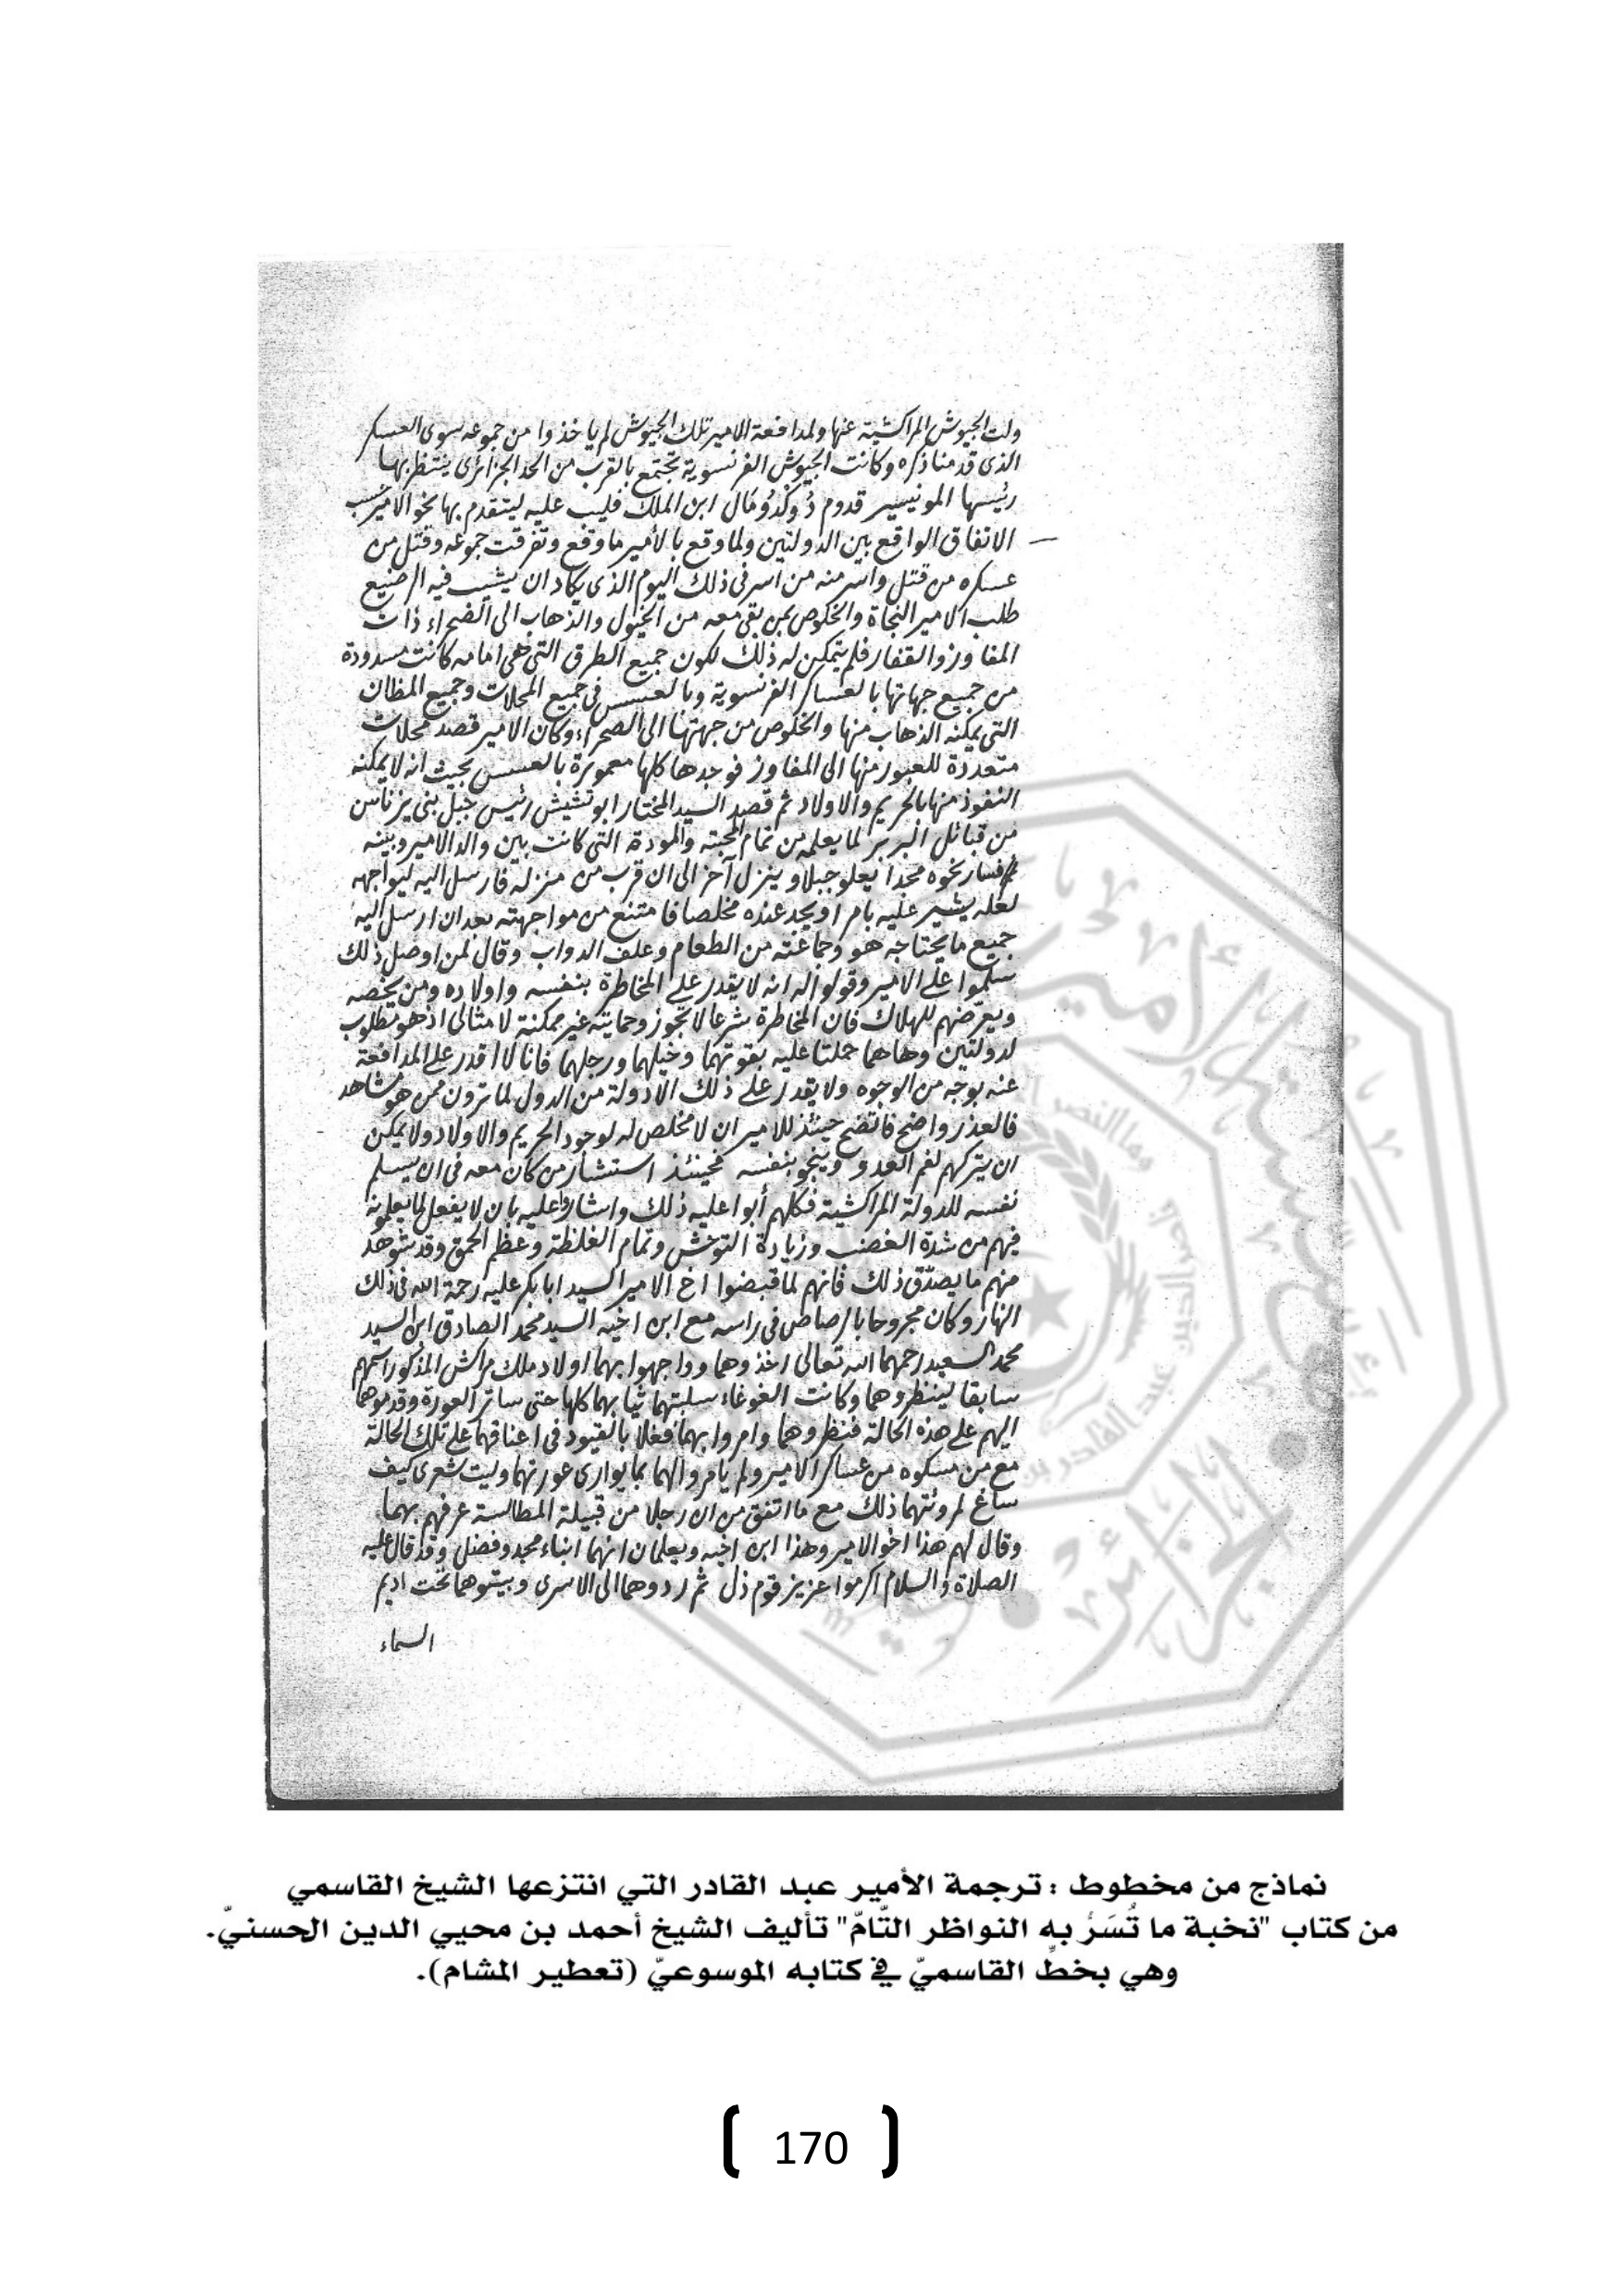 ولت الجيوش المراكشية عنها ولمدافعة الامير تلك الجيوش لم ياخذوا من جموعه سوى العسكر
الذى قدمنا ذكره وكانت الجيوش الفرنسوية تجتمع بالقرب من الحد الجزائرى ينتظر بها
رئيسها المونيسير قدوم دُوكْدُومَال ابن الملك فليب عليه ليتقدم بها نحو الامير حسب
الاتفاق الواقع بين الدولتين ولما وقع بالأمير ما وقع وتفرقت جموعه وقتل من
عسكره من قتل واسر منه من اسر فى ذلك اليوم الذى يكاد ان يشيب فيه الرضيع
طلب الامير النجاة والخلوص بمن بقى معه من الخيول والذهاب الى الصحراء ذات
المفاوز والقفار فلم يتمكن له ذلك لكون جميع الطرق التى هى امامه كانت مسدودة
من جميع جهاتها بالعساكر الفرنسوية وبالعسس فى جميع المحلات وجميع المظان
التى يمكنه الذهاب منها والخلوص من جهتها الى الصحراء وكان الامير قصد محلات
متعددة للعبور منها الى المفاوز فوجدها كلها معمورة بالعسس بحيث انه لا يمكنه
النفوذ منها بالحريم والاولاد ثم قصد السيد المختار ابوتشيش رئيس جبل بنى يزناسن
من قبائل البربر لما يعلمه من تمام المحبة والمودة التى كانت بين والد الامير وبينه
فسار نحوه مجدا يعلو جبلا وينزل آخر الى ان قرب من منزله فارسل اليه ليواجهه
لعله يشير عليه بامر او يجد عنده مخلصا فامتنع من مواجهته بعد ان ارسل اليه
جميع ما يحتاجه هو وجماعته من الطعام وعلف الدواب وقال لمن اوصل ذلك
سلموا على الامير وقولوا له انه لا يقدر على المخاطرة بنفسه واولاده ومن يخصه
ويعرّضهم للهلاك فان المخاطرة شرعا لا تجوز وحمايته غير ممكنة لامثالى اذ هو مطلوب
لدولتين وهاهما حملتا عليه بقوتهما وخيلهما ورجلهما فانا لا اقدر على المدافعة
عنه بوجه من الوجوه ولا يقدر على ذلك الا دولة من الدول لما ترون ممن هو مشاهد
فالعذر واضح فاتضح حينئذ للامير ان لا مخلص له لوجود الحريم والاولاد ولا يمكن
ان يتركهم لفم العدو وينجو بنفسه فحينئذ استشار من كان معه فى ان يسلم
نفسه للدولة المراكشية فكلهم أبوا عليه ذلك واشاروا عليه بان لا يفعل لما يعلمونه
فيهم من شدة الغضب وزيادة التوحش وتمام الغلظة وعظم الحمق وقد شوهد
منهم ما يصدّق ذلك فانهم لما قبضوا اخ الامير السيد ابابكر عليه رحمة الله فى ذلك
النهار وكان مجروحا بالرصاص فى راسه مع ابن اخيه السيد محمد الصادق ابن السيد
محمد السعيد رحمهما الله تعالى اخذوهما وواجهوا بهما اولاد ملك مراكش المذكور اسمهم
سابقا لينظروهما وكانت الغوغاء سلبتهما ثيابهما كلها حتى ساتر العورة وقدموهما
اليهم على هذه الحالة فنظروهما وامروا بهما فغلا بالقيود فى اعناقهما على تلك الحالة
مع من مسكوه من عساكر الامير ولم يامروا لهما بما يوارى عورتهما وليت شعرى كيف
ساغ لمروئتهما ذلك مع ما اتفق من ان رجلا من قبيلة المطالسة عرفهم بهما
وقال لهم هذا اخو الامير وهذا ابن اخيه ويعلمان انهما ابناء مجد وفضل وقد قال عليه
الصلاة والسلام اكرموا عزيز قوم ذل ثم ردوهما الى الاسرى وبيتوهما تحت اديم
السماء
نماذج من مخطوط : ترجمة الأمير عبد القادر التي انتزعها الشيخ القاسمي
من كتاب "نخبة ما تُسَرُّ به النواظر التّامّ" تأليف الشيخ أحمد بن محيي الدين الحسنيّ.
وهي بخطّ القاسميّ في كتابه الموسوعيّ (تعطير المشام).
170